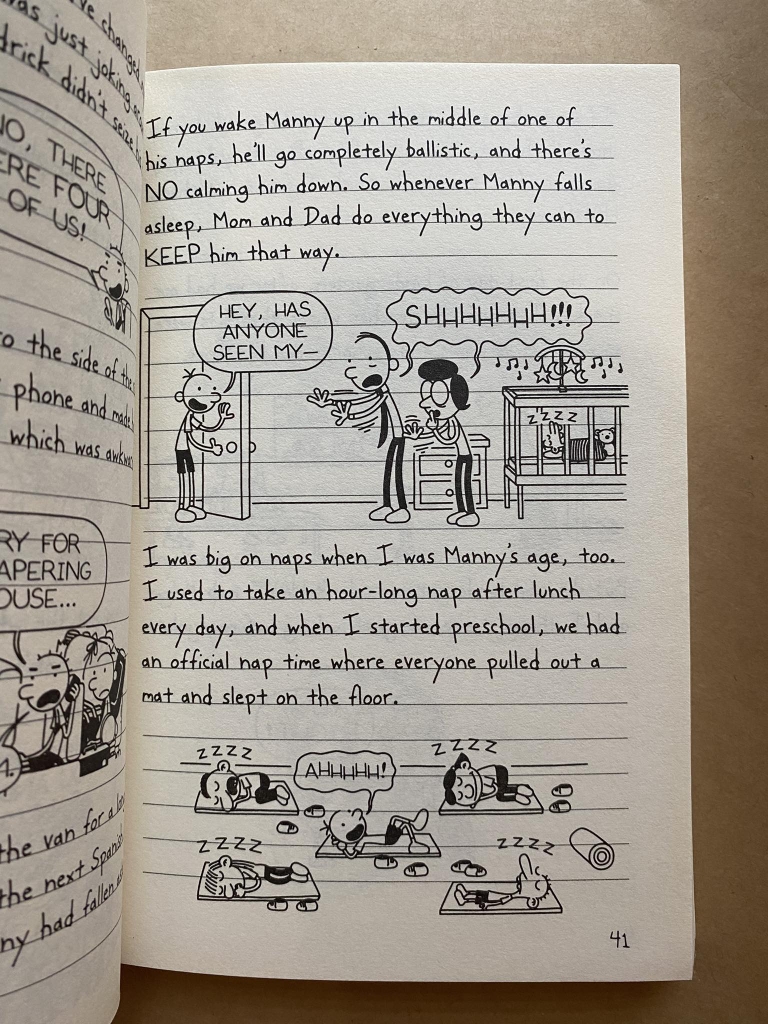 've changed
was just joking
drick didn't seize
NO, THERE
ERE FOUR
OF US!
to the side of the
phone and made
which was
RY FOR
APERING
OUSE...
the van for a
the next Spanish
ny had fallen
If you wake Manny up in the middle of one of
his naps, he'll go completely ballistic, and there's
NO calming him down. So whenever Manny falls
asleep, Mom and Dad do everything they can to
KEEP him that way.
HEY, HAS
ANYONE
SEEN MY—
SHHHHHHH!!!
zzzzz
I was big on naps when I was Manny's age, too.
I used to take an hour-long nap after lunch
every day, and when I started preschool, we had
an official nap time where everyone pulled out a
mat and slept on the floor.
ZZZZ
AHHHHH!
ZZZZ
ZZZZ
ZZZZ
41